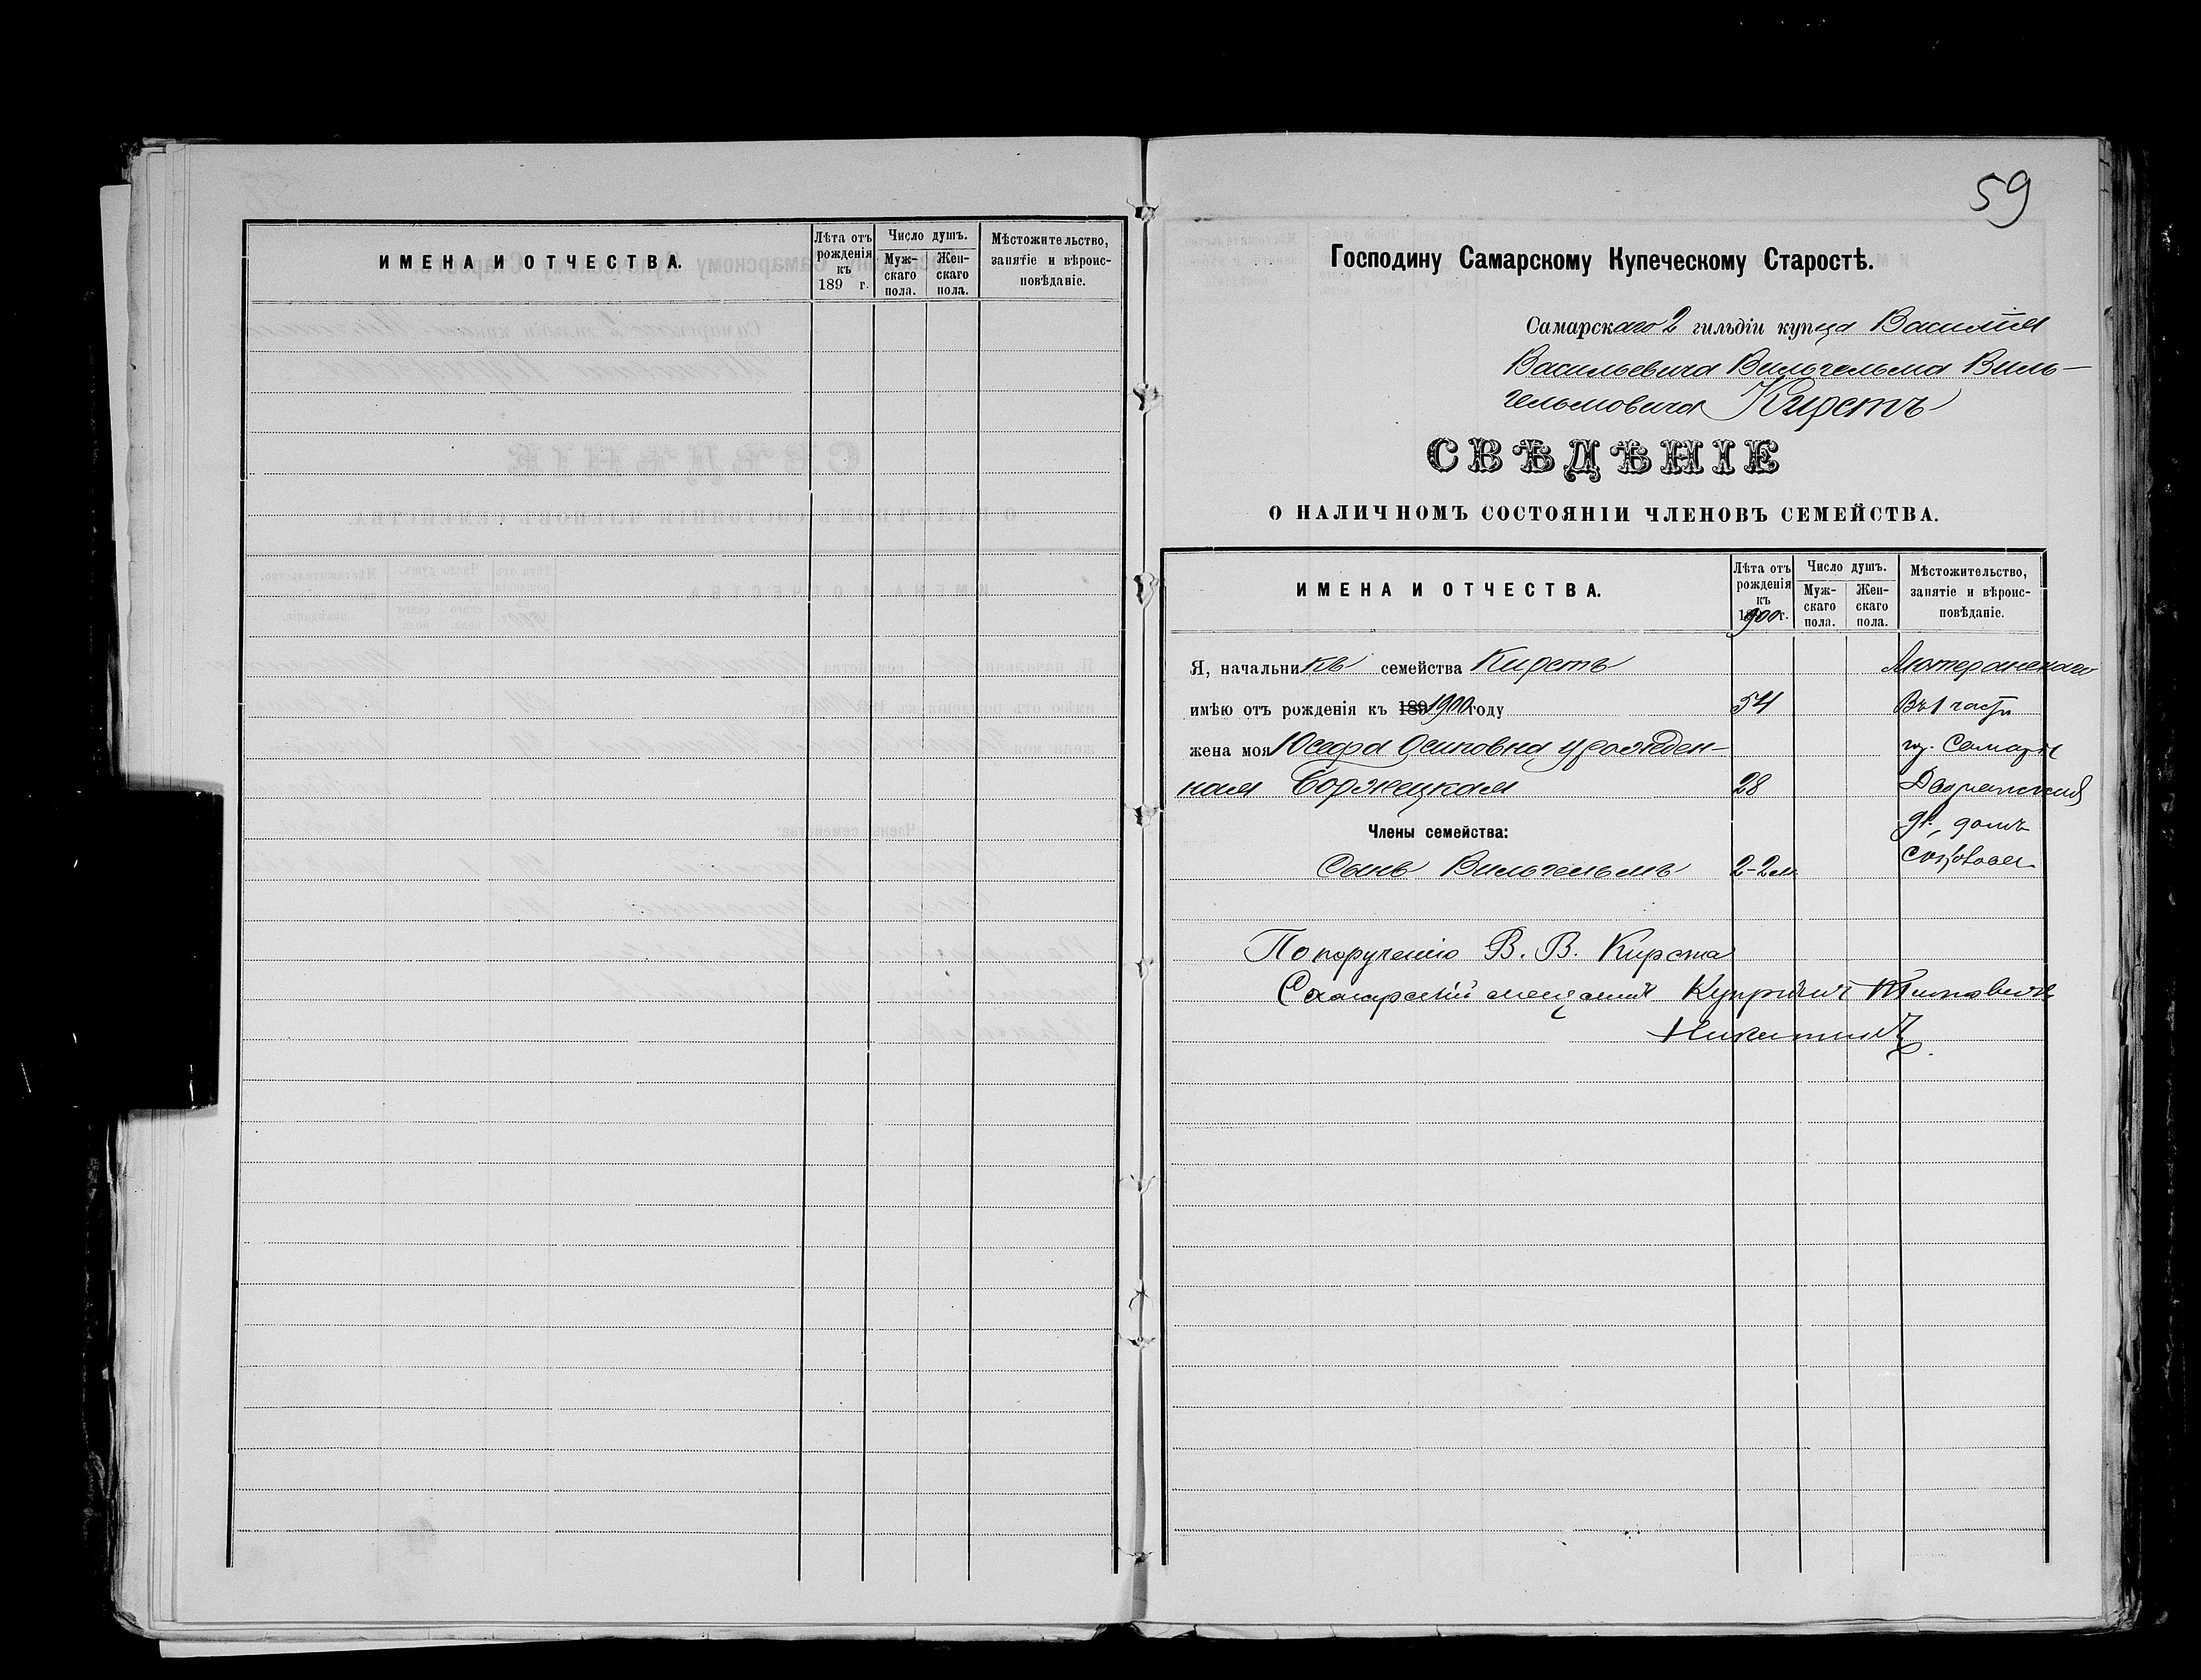 ИМЕНА И ОТЧЕСТВА.
Лѣта отъ рожденія къ 189 г.
Число душъ.
Мужскаго пола.
Женскаго пола.
Мѣстожительство, занятіе и вѣроисповѣданіе.
59
Господину Самарскому Купеческому Старостѣ.
Самарскаго 2 гильдіи купца Василія
Васильевича Вильгельма Виль-
гельмовича Кирстъ
СВѢДѢНІЕ
О НАЛИЧНОМЪ СОСТОЯНІИ ЧЛЕНОВЪ СЕМЕЙСТВА.
ИМЕНА И ОТЧЕСТВА.
Лѣта отъ рожденія къ 1900 г.
Число душъ.
Муж-скаго пола.
Жен-скаго пола.
Мѣстожительство, занятіе и вѣроис-повѣданіе.
Я, начальникъ семейства Кирстъ Лютеранскаго
имѣю отъ рожденія къ 189 1900 году 54 Въ 1 части
жена моя Юсефа Осиповна урожден- гор. Самары
ная Боржецкая 28 Дворянской
Члены семейства: ул. домъ
Сынъ Вильгельмъ 2-2 м.
По порученію В. В. Кирста
Самарскій мещанинъ
Никитинъ.